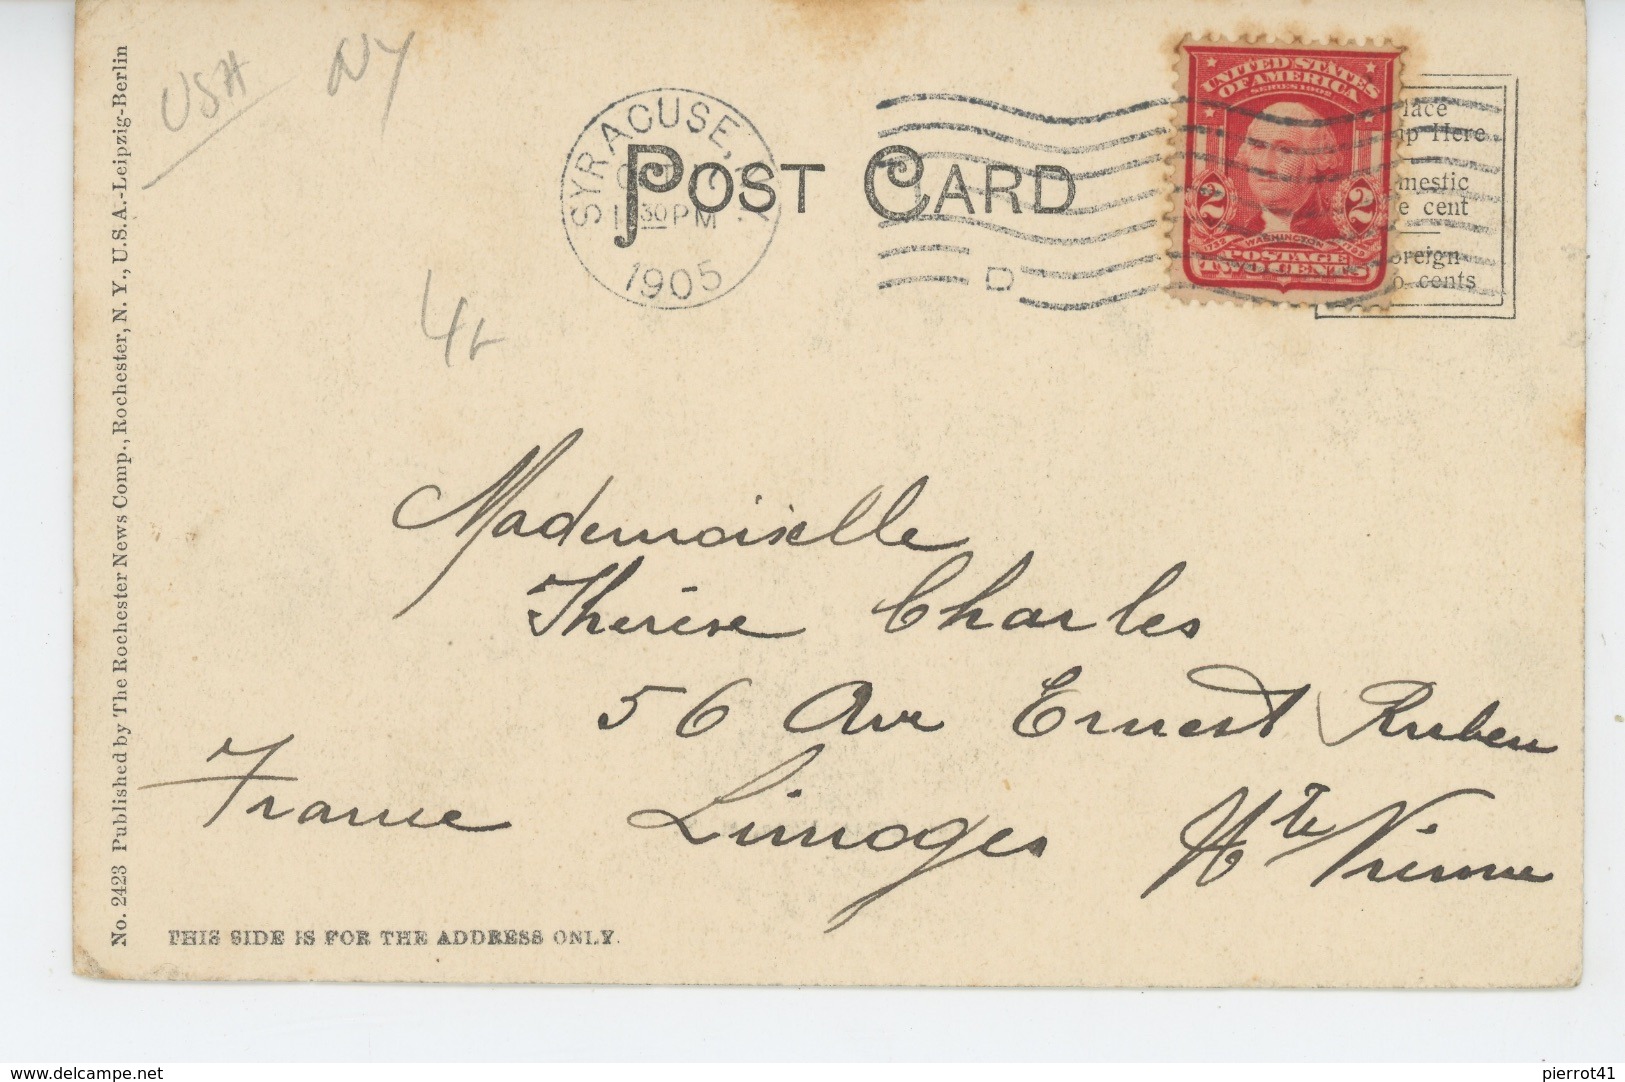 USA
NY
SYRACUSE,
30 PM
1905
POST CARD
UNITED STATES
OF AMERICA
SERIES 1902
2 2
1732 WASHINGTON 1799
POSTAGE
TWO CENTS
lace
p Here
mestic
e cent
oreign
o cents
D
Mademoiselle
Thérèse Charles
56 Ave Ernest Ruben
France Limoges Hte Vienne
THIS SIDE IS FOR THE ADDRESS ONLY.
No. 2423 Published by The Rochester News Comp., Rochester, N. Y., U.S.A.-Leipzig-Berlin
delcampe.net
pierrot41